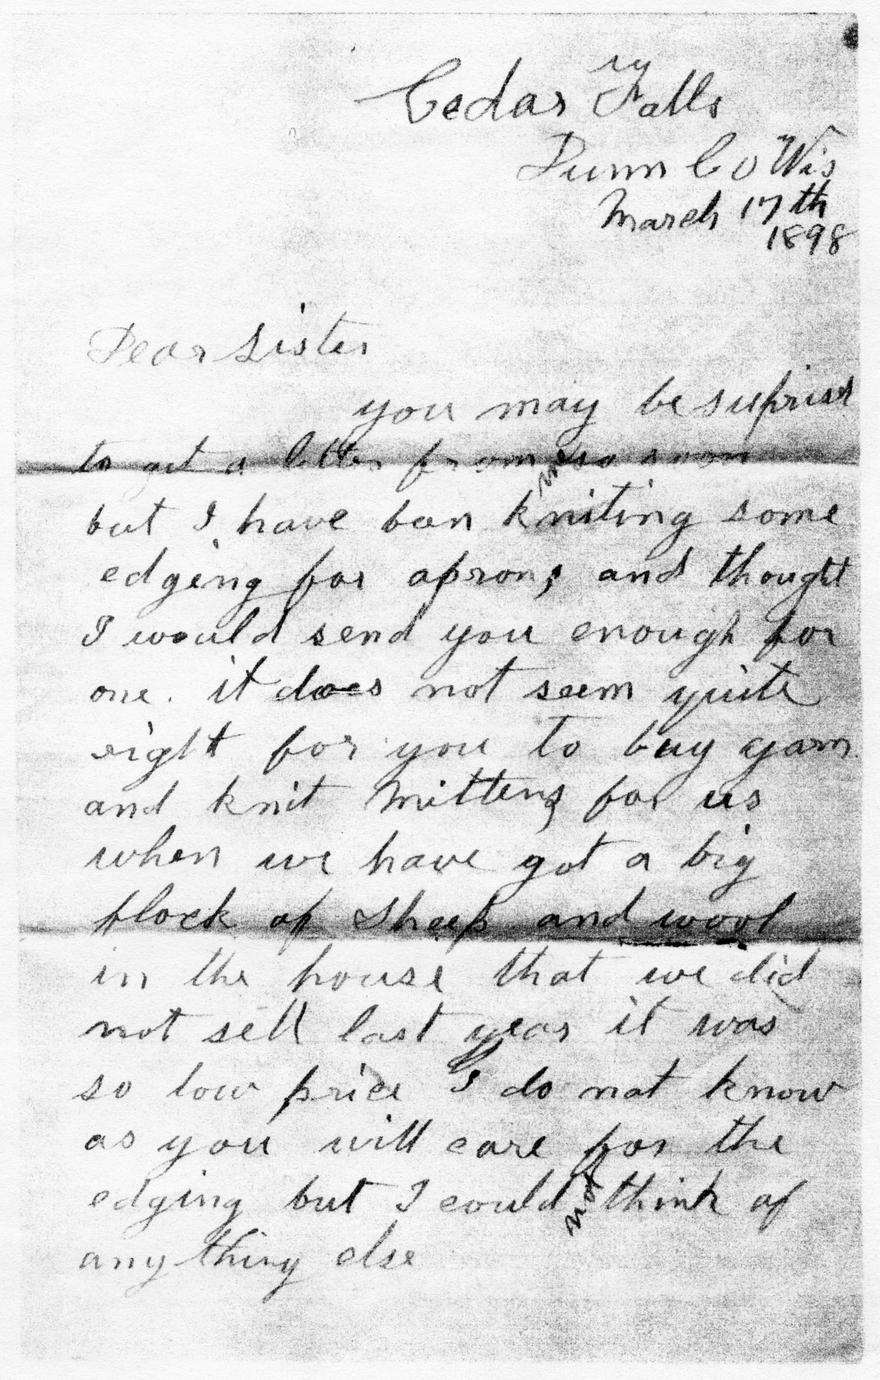 Cedar Falls
Dunn Co Wis
March 17th
1898
Dear Sister
you may be suprised
to get a letter from me so soon
but I have ben kniting some
edging for aprons, and thought
I would send you enough for
one. it does not seem quite
right for you to buy yarn
and knit Mittens for us
when we have got a big
flock of Sheep and wool
in the house that we did
not sell last year it was
so low price I do not know
as you will care for the
edging but I could not think of
any thing else